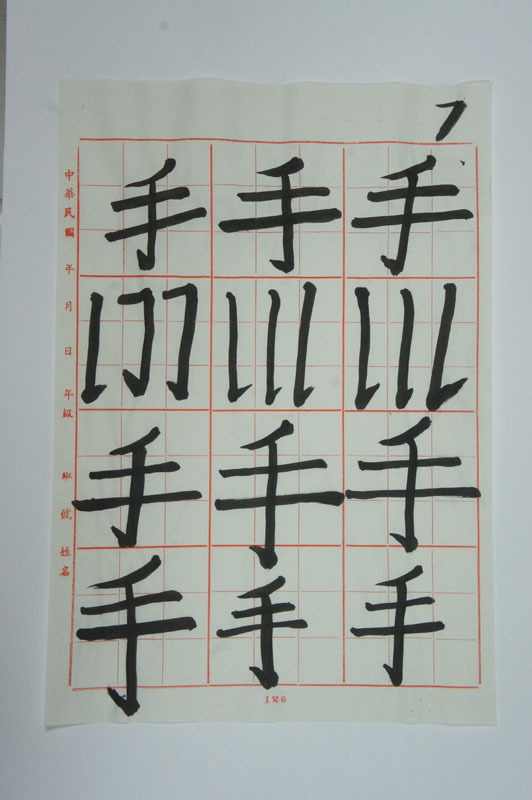 手 手 手
手 手 手
手 手 手
中華民國 年 月 日 年級 班 號 姓名